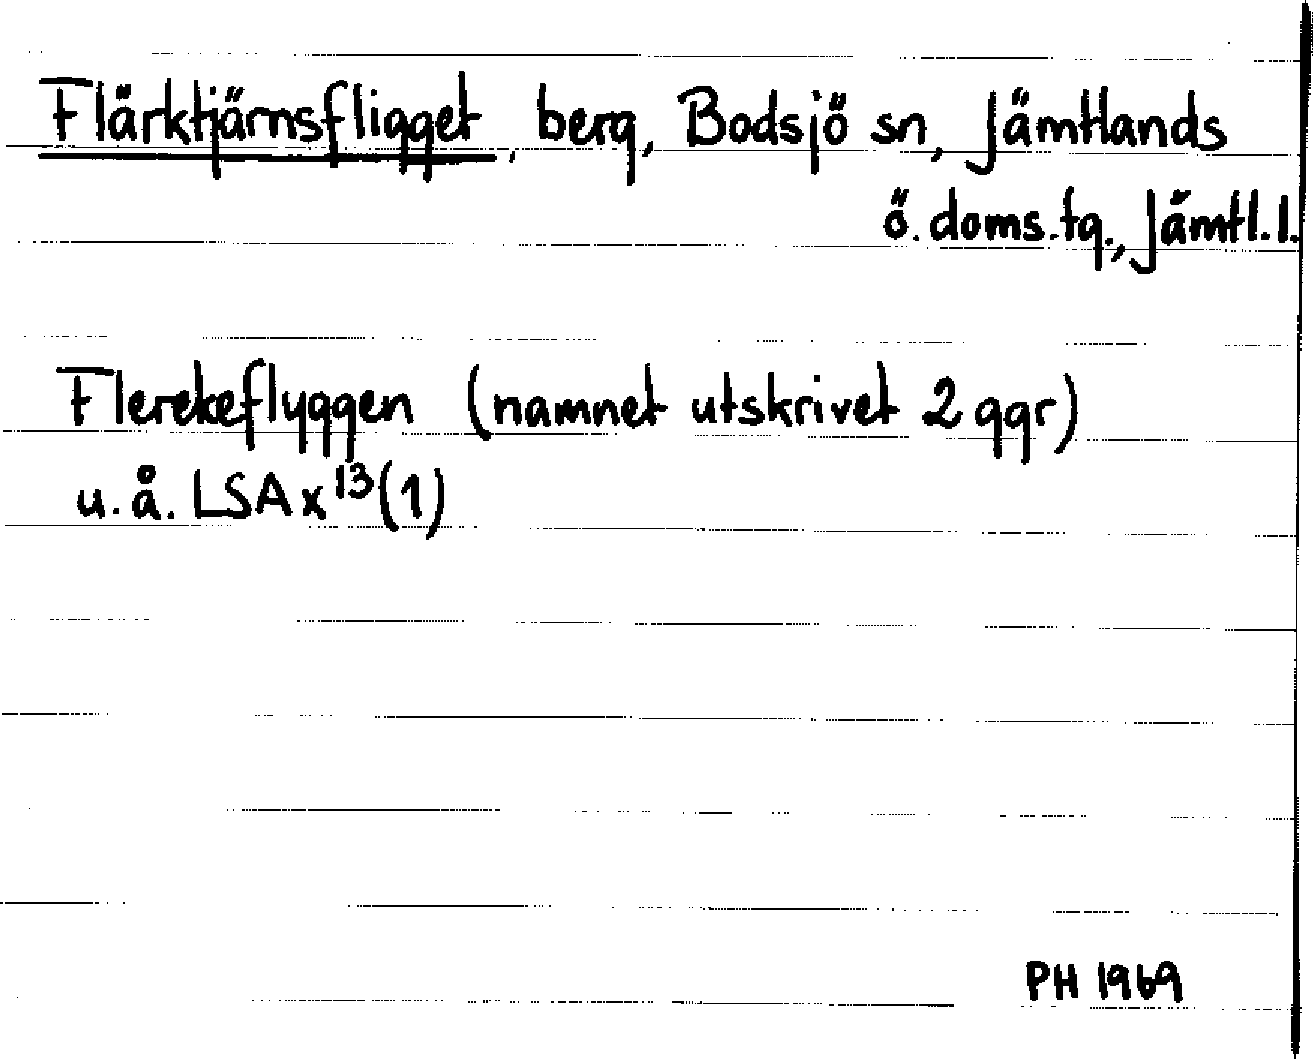 Flärktjärnsfligget, berg, Bodsjö sn, Jämtlands
ö. doms.tg., Jämtl.l.
Flerekeflyggen (namnet utskrivet 2 ggr)
u.å. LSA x¹³(1)
PH 1969